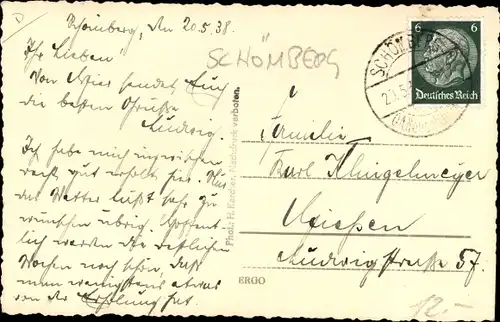 Schömberg, den 20.5.38.
Ihr Lieben
Von hier sendet Euch
die besten Grüße
Ludwig.
Ich habe mich inzwischen
recht gut erholt hier. Nur
das Wetter läßt sehr zu
wünschen übrig. Hoffent-
lich werden die restlichen
Wochen noch schön, daß
man wenigstens etwas
von der Erholung hat.
SCHÖMBERG
Photo H. Karcher. Nachdruck verboten.
ERGO
SCHÖMBERG
20.5.
6 6
Deutsches Reich
Familie
Karl Klingelmeyer
Giessen
Ludwigstraße 57.
12.-